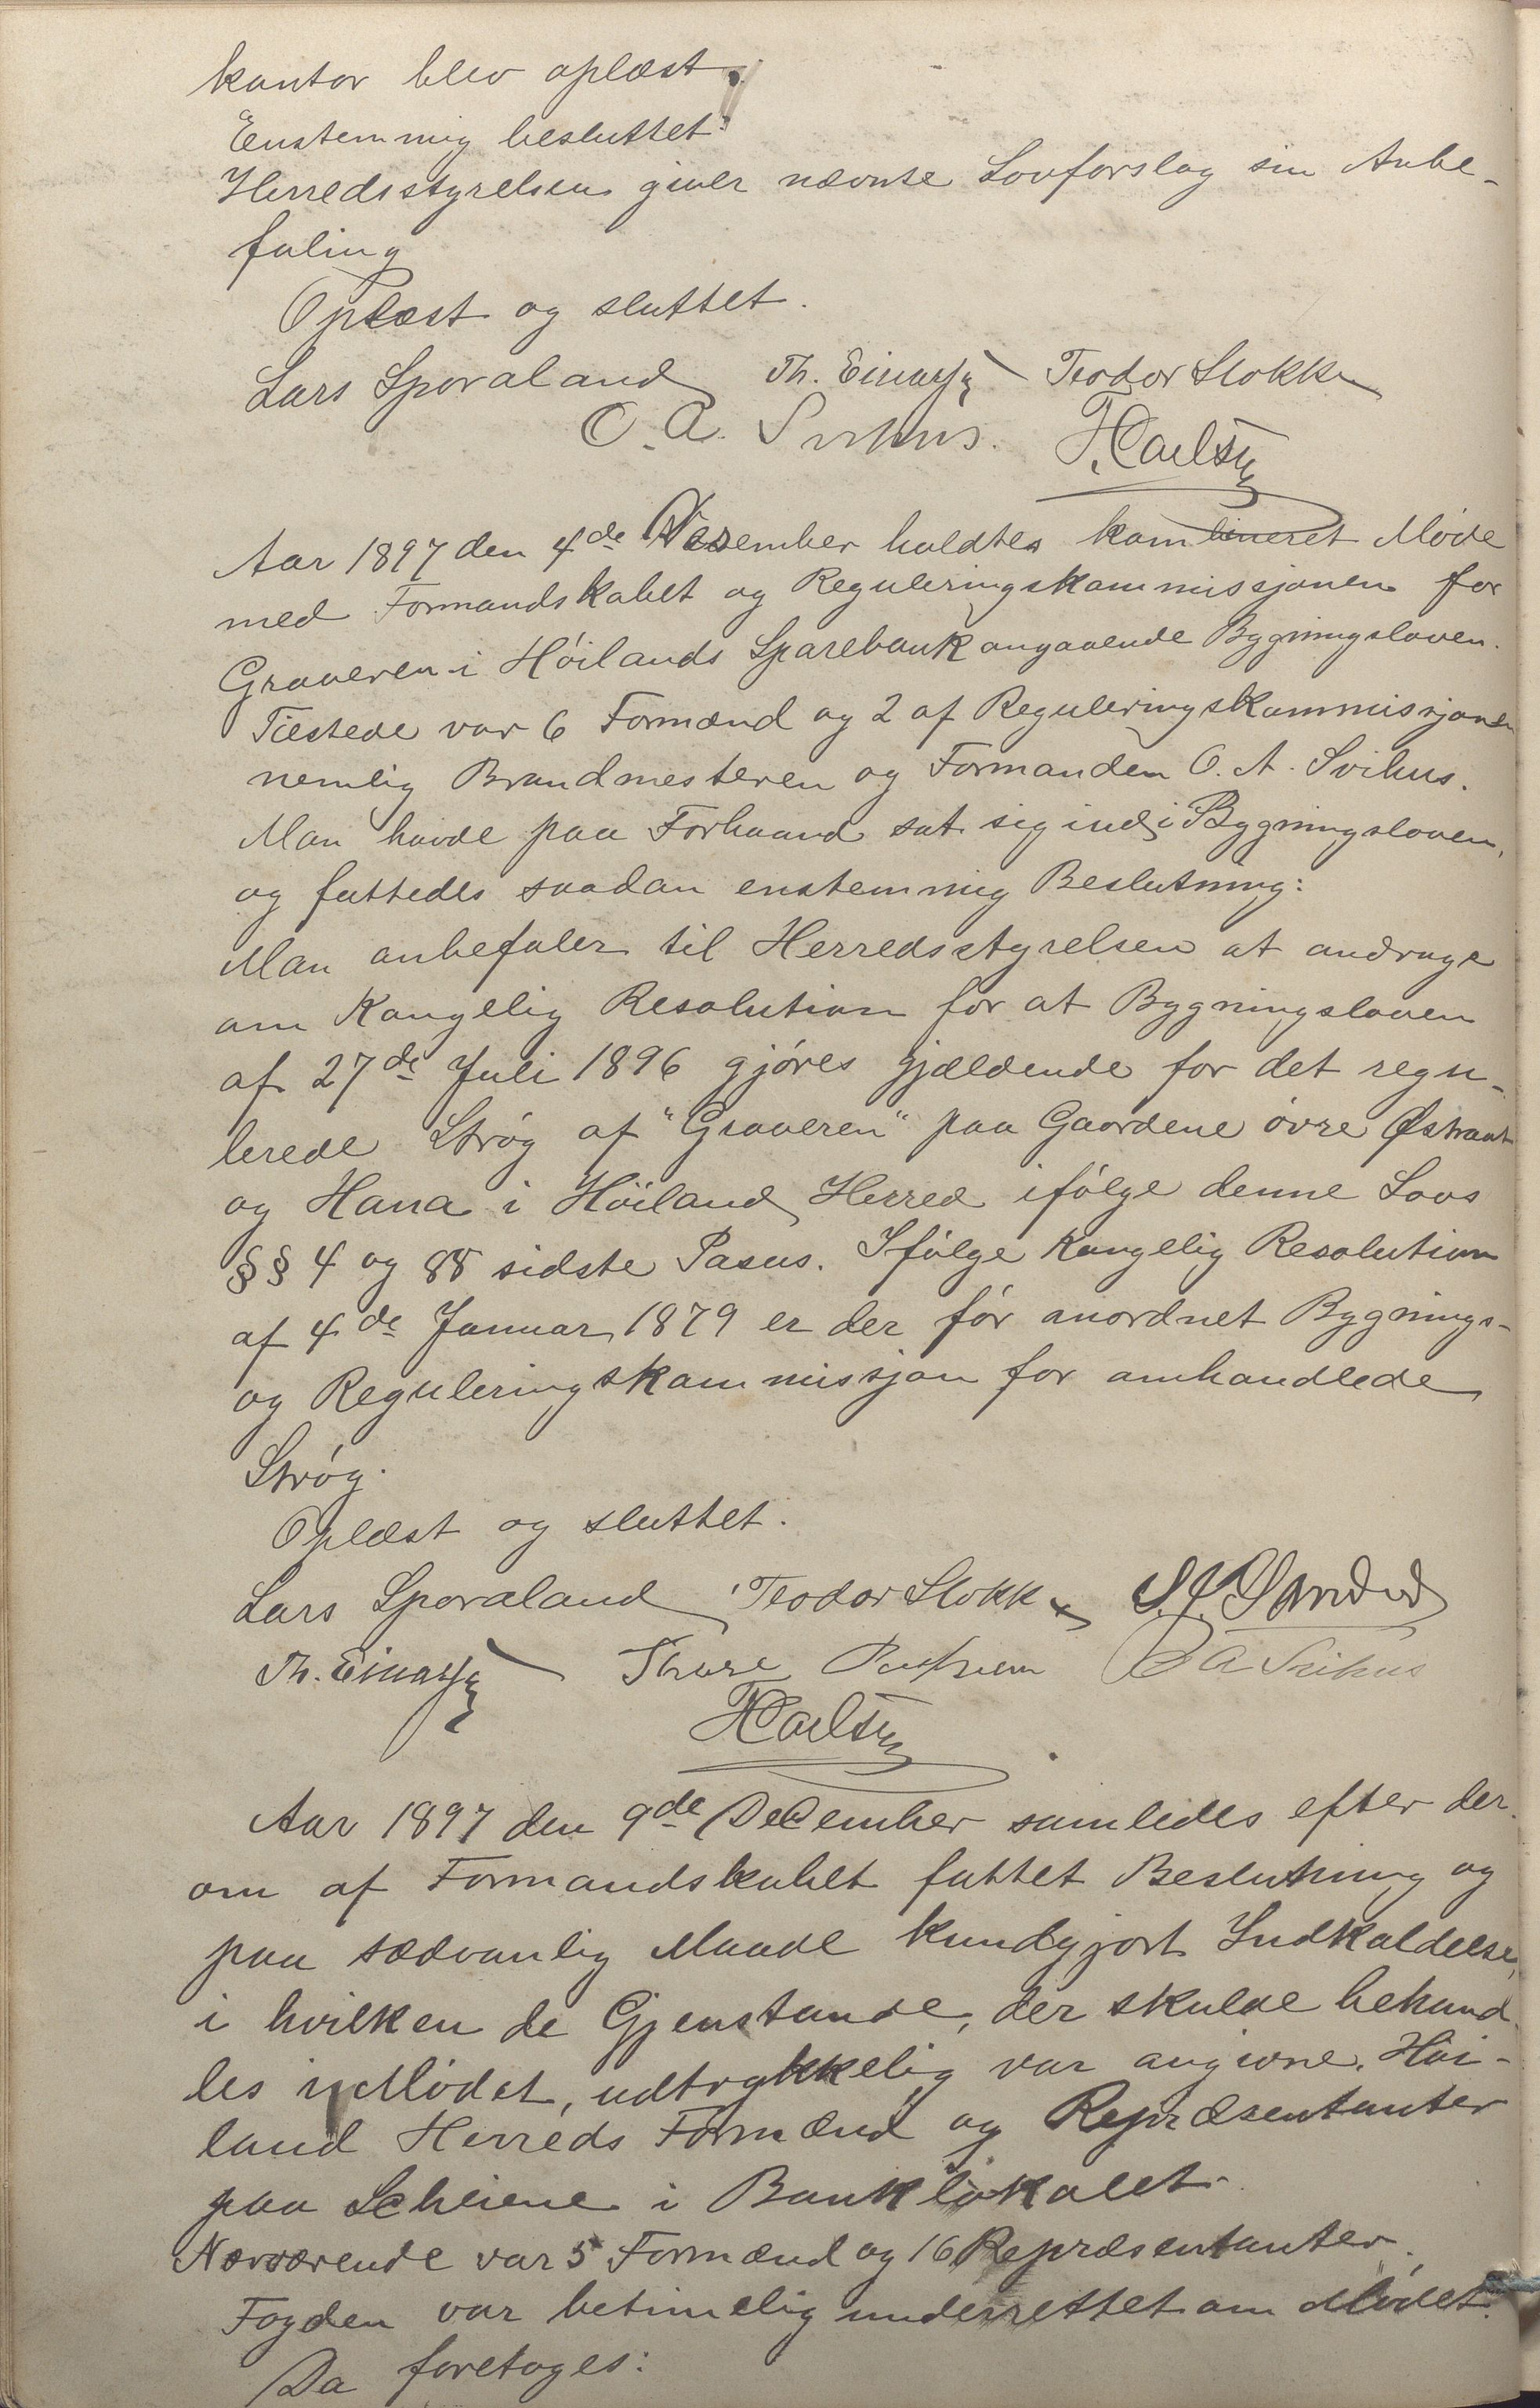 kontor blev oplæst.
Enstemmig besluttet:
Herredsstyrelsen giver nævnte Lovforslag sin Anbe-
faling
Oplæst og sluttet.
Lars Sporaland Th. Einarsen Teodor Stokke
O. A. Svihus. T. Carlsen
Aar 1897 den 4de Desember holdtes kombineret Møde
med Formandskabet og Reguleringskommissjonen for
Graveren i Høilands Sparebank angaaende Bygningsloven.
Tilstede var 6 Formænd og 2 af Reguleringskommissjonen
nemlig Brandmesteren og Formanden O. A. Svihus.
Man havde paa Forhaand sat sig ind i Bygningsloven,
og fattedes saadan enstemmig Beslutning:
Man anbefaler til Herredsstyrelsen at andrage
om Kongelig Resolution for at Bygningsloven
af 27de Juli 1896 gjøres gjældende for det regu-
lerede Strøg af "Graveren" paa Gaardene øvre Østraat
og Hana i Høiland Herred ifølge denne Lovs
§§ 4 og 88 sidste Pasus. Ifølge Kongelig Resolution
af 4de Januar 1879 er der før anordnet Bygnings-
og Reguleringskommissjon for omhandlede
Strøg.
Oplæst og sluttet.
Lars Sporaland Teodor Stokke
Th. Einarsen Thore O A Svihus
T. Carlsen
Aar 1897 den 9de December samledes efter der-
om af Formandskabet fattet Beslutning og
paa sædvanlig Maade kundgjort Indkaldelse,
i hvilken de Gjenstande, der skulde behand-
les i Mødet, udtrykkelig var angivne, Høi-
land Herreds Formænd og Repræsentanter
paa Scheiene i Banklokalet.
Nærværende var 5 Formænd og 16 Repræsentanter.
Fogden var betimelig underrettet om Mødet.
Da foretoges: